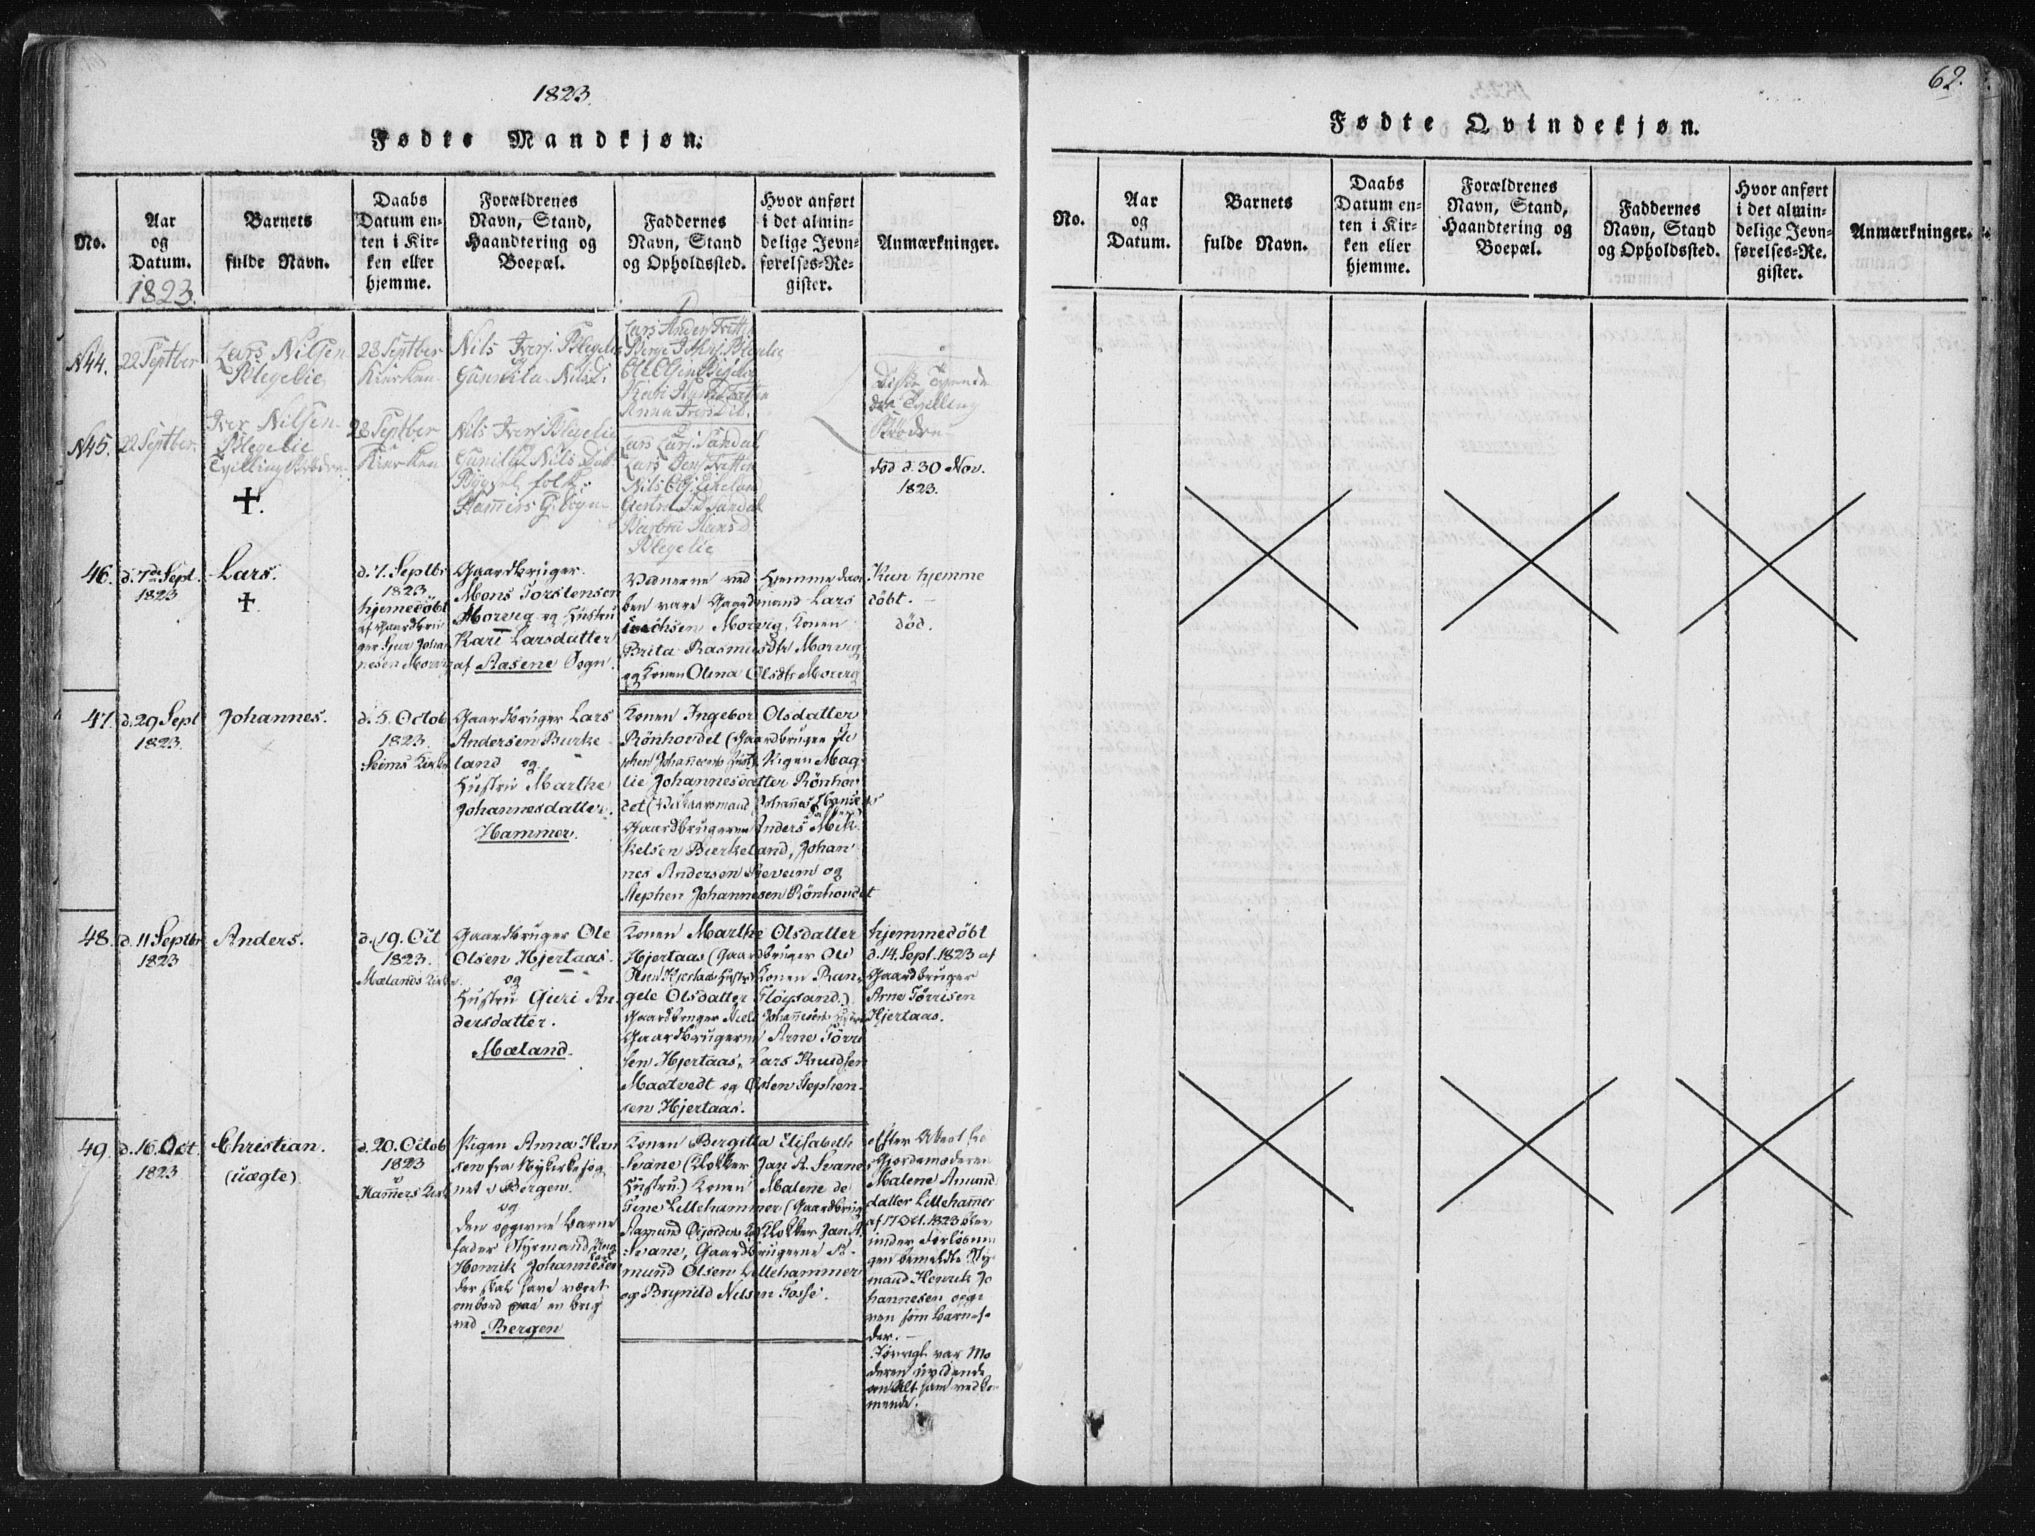 1823.
Fødte Mandkjøn.
No.
Aar
og
Datum.
1823.
Barnets
fulde Navn.
Daabs
Datum en-
ten i Kir-
ken eller
hjemme.
Forældrenes
Navn, Stand,
Haandtering og
Boepæl.
Faddernes
Navn, Stand
og Opholdssted.
Hvor anført
i det almin-
delige Jevn-
førelses-Re-
gister.
Anmærkninger.
N44.
22 Septber
Lars Nilsen
Blegelie
28 Septber
Kirken
Nils Ivers. Blegelie
Gunnila Nilsd.
1
Ole Olsen
Anna Iversd.
Disse
Tvilling
Brødre
N45.
22 Septber.
Iver Nilsen
Blegelie
Tvilling Brødre
+.
28 Septber
Kirken
Nils Ivers Blegelie
Gunilla Nils Dat
Bøgsel folk
Hamers G. Sogn
2
Lars Lars. Sandal
Lars
Nils
Sandal
Barbra Hans D.
Blegelie
død d. 30 Nov.
1823.
46.
d. 7de Sept.
1823
Lars.
+
d. 7. Septbr
1823
hjemedöbt
af Gaardbru
ger Siur Johan
nesen Morvig
Gaardbruger
Mons Torstensen
Morvig og Hustru
Kari Larsdatter
af Aasene Sogn.
Vidnerne ved Hjemmedaa
ben vare Gaardmand Lars
Morvig, Konen
Brita Rasmusdtr Morvig
og Konen Olina Olsdtr Morvig
Kun hjemme
döbt.
död.
47.
d. 29 Sept
1823.
Johannes.
d. 5. Octob
1823.
Seims Kirke
Gaardbruger Lars
Andersen Burke
land og
Hustru Marthe
Johannesdatter.
Hammer.
Konen Ingebor Olsdatter
Rönhovdet (Gaardbruger Ste
phen Johannesens Hustr. Pigen Mag
lie Johannesdatter Rönhov
det
Gaardbrugerne Anders Mik
kelsen Burkeland, Johan
nes Andersen Seveim og
Stephen Johannesen Rönhovdet
48.
d. 11 Septbr
1823
Anders.
d. 19. Oct
1823.
Mælands Kirke
Gaardbruger Ole
Olsen Hjertaas.
og
Hustru Guri An
dersdatter.
Mæland.
Konen Marthe Olsdatter
Hjertaas (Gaardbruger Ole
Konen Ran
gele Olsdatter Flöysand.)
Gaardbruger Niels Johannesens Hustru
Gaardbrugerne Arne Törri
sen Hjertaas, Lars Knudsen
Maatvedt og Osten Stephen-
sen Hjertaas.
hjemmedöbt
d. 14. Sept. 1823 af
Gaardbruger
Arne Törrisen
Hjertaas.
49.
d. 16. Oct.
1823.
Christian.
(uægte)
d. 20. Octob
1823
i
Hamers Kirke
Pigen Anna Han
sen fra Nykirkesog
net i Bergen.
og
den opgivne Barne
fader Styrmand
Henrik Johannesen
der skal have været
ombord paa en brig
ved Bergen
Konen Bergitta Elisabeth
Svane (Klokker Jan A. Svanes
Hustru.) Konen Malene
Lillehammer (Gaardbrug
Klokker Jan A.
Svane, Gaardbrugerne A-
mund Olsen Lillehammer
og Brynild Nilsen Fosse.
Efter Attest fra
Gjordemoderen
Malene Amund
datter Lillehammer
af 17 Oct. 1823 blev
under Forløsnin
gen bemeldte Styr
mand Henrik Jo
hannesen opgi
ven som Barnefa
der.
Iøvrigt var Mo
deren uvidende
om Alt ham vedkom
mende.
62.
Fødte Qvindekjøn.
No.
Aar
og
Datum.
Barnets
fulde Navn.
Daabs
Datum en-
ten i Kir-
ken eller
hjemme.
Forældrenes
Navn, Stand,
Haandtering og
Boepæl.
Faddernes
Navn, Stand
og Opholdssted.
Hvor anført
i det almin-
delige Jevn-
førelses-Re-
gister.
Anmærkninger.